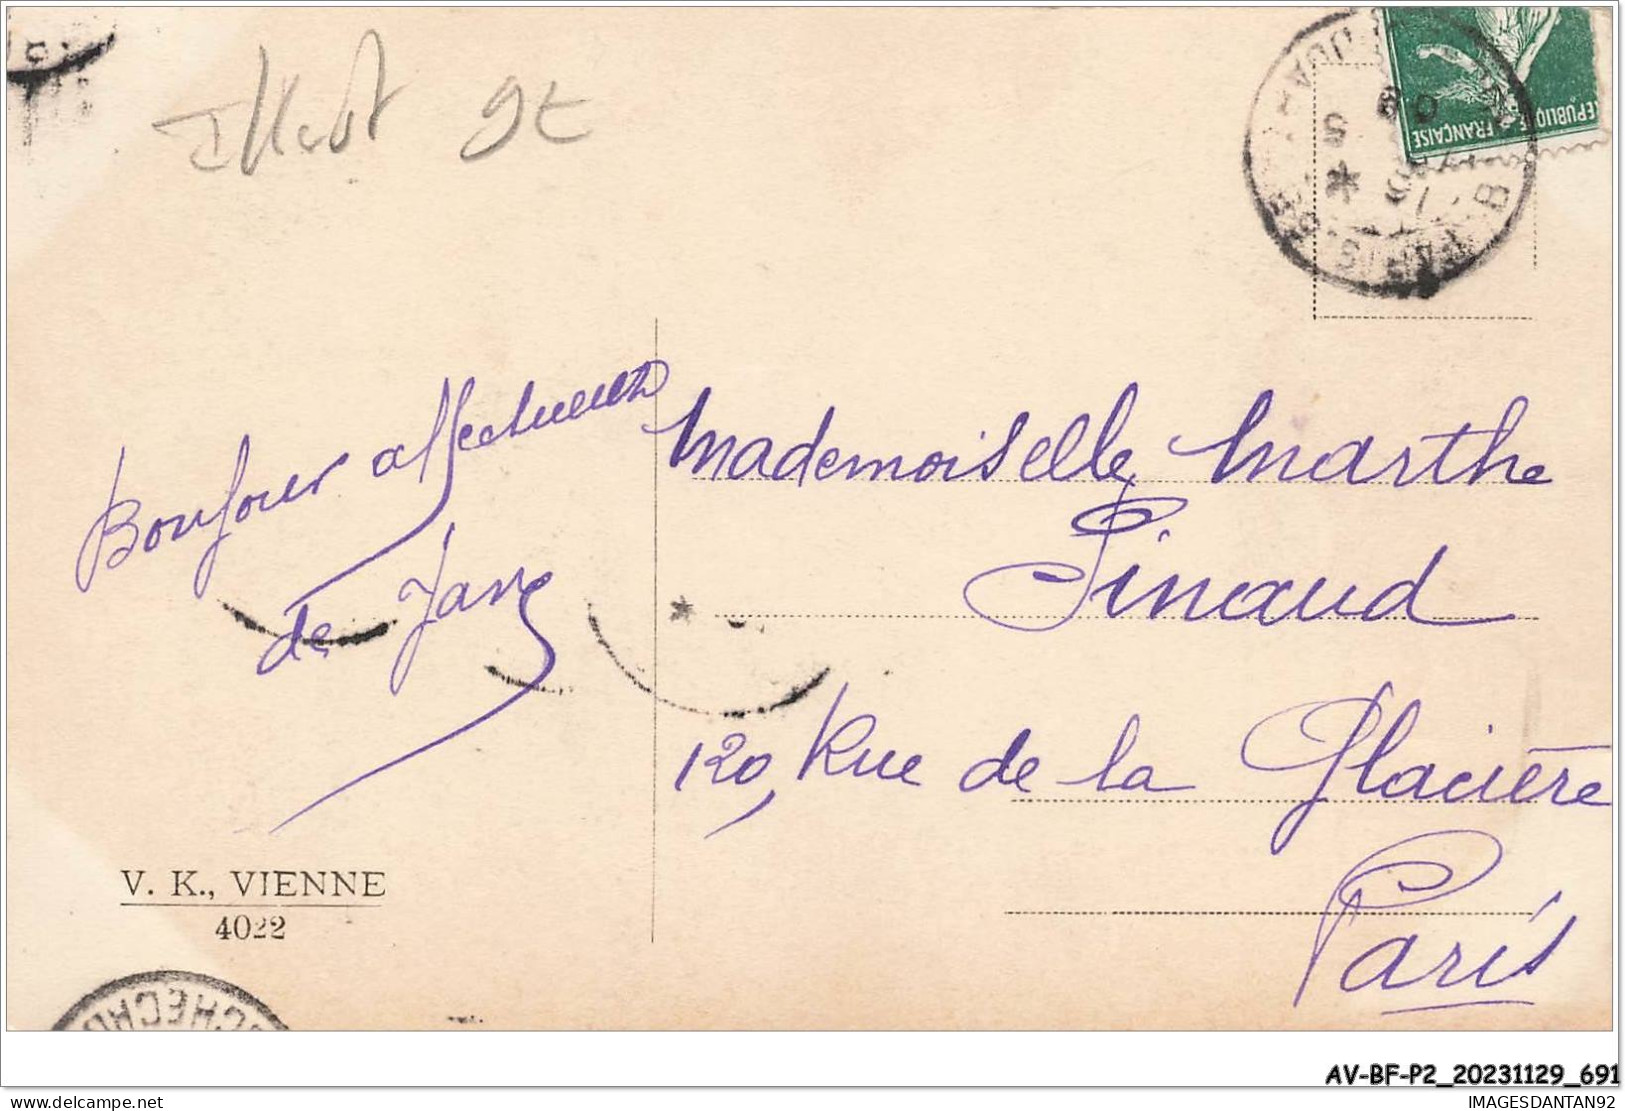 9E
RÉPUBLIQUE FRANÇAISE
PARIS
Bonjour affectueux
de
Mademoiselle Marthe
Pinaud
120, Rue de la Glacière
Paris
V. K., VIENNE
4022
AV-BF-P2_20231129_691
delcampe.net
IMAGESDANTAN92